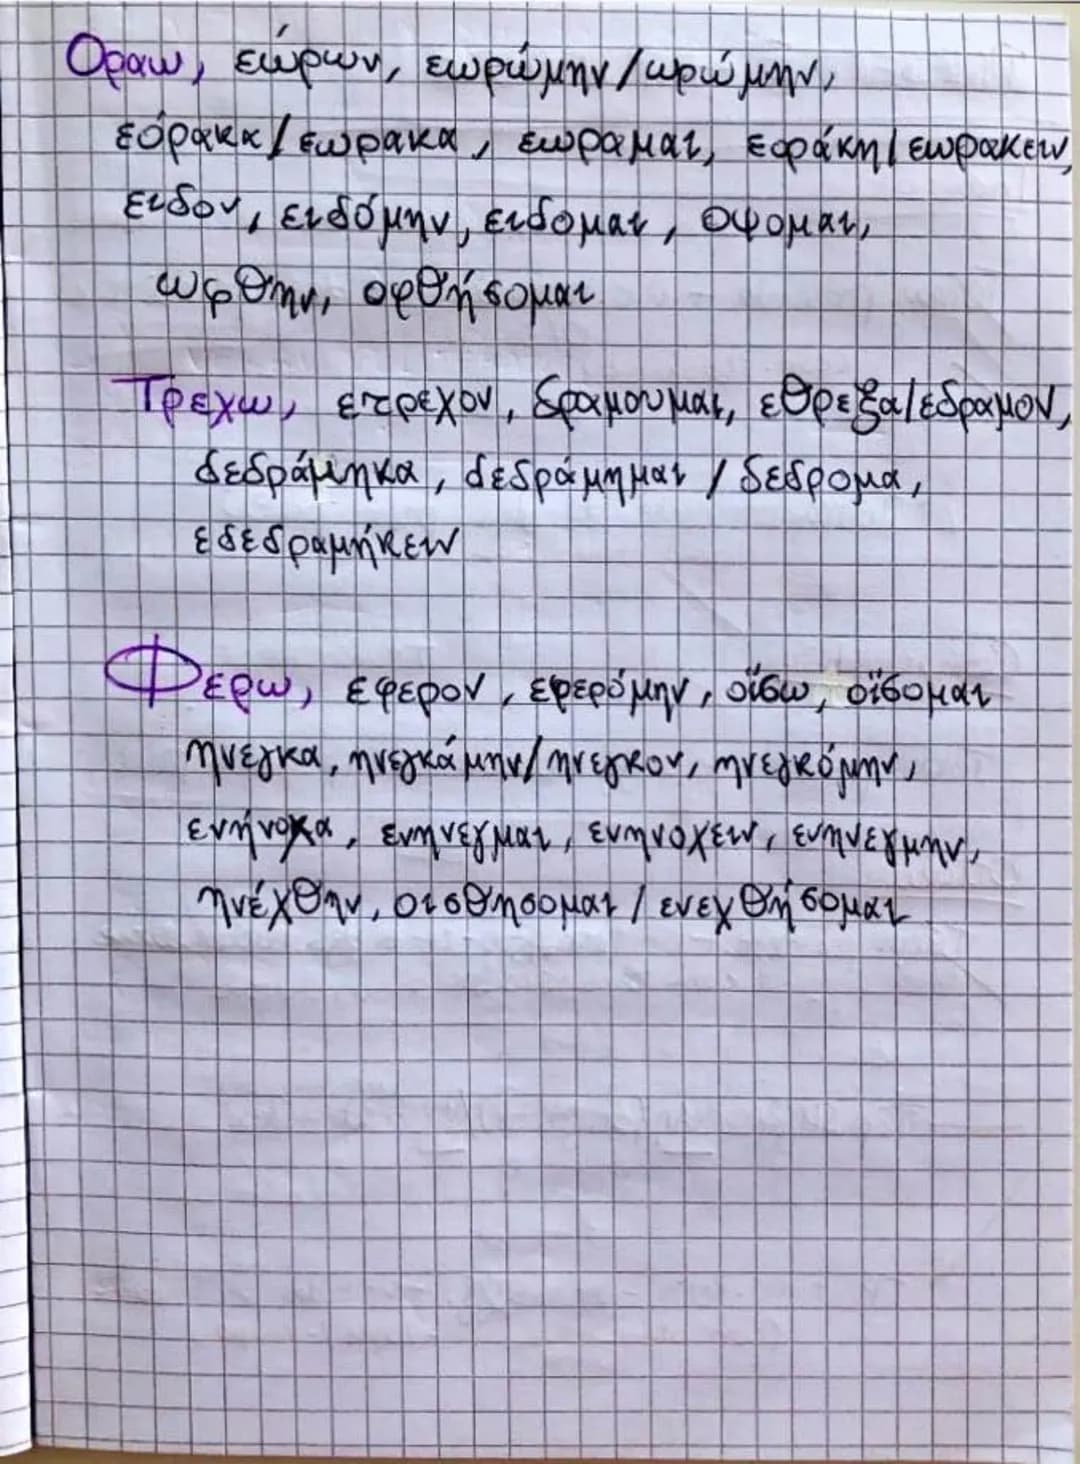 Οραω, εώρων, εωρώμην/ωρώμην,
εόρακα/εωρακα, εωραμαι, εοράκη/εωρακειν,
ειδον, ειδόμην, ειδομαι, οψομαι,
ωφθην, οφθήσομαι
Τρεχω, ετρεχον, δραμουμαι, εθρεξα/εδραμον,
δεδράμηκα, δεδράμημαι / δεδρομα,
εδεδραμήκειν
Φερω, εφερον, εφερόμην, οΐσω, οΐσομαι
ηνεγκα, ηνεγκάμην/ηνεγκον, ηνεγκόμην,
ενήνοχα, ενηνεγμαι, ενηνοχειν, ενηνεγμην,
ηνέχθην, οισθησομαι / ενεχθήσομαι